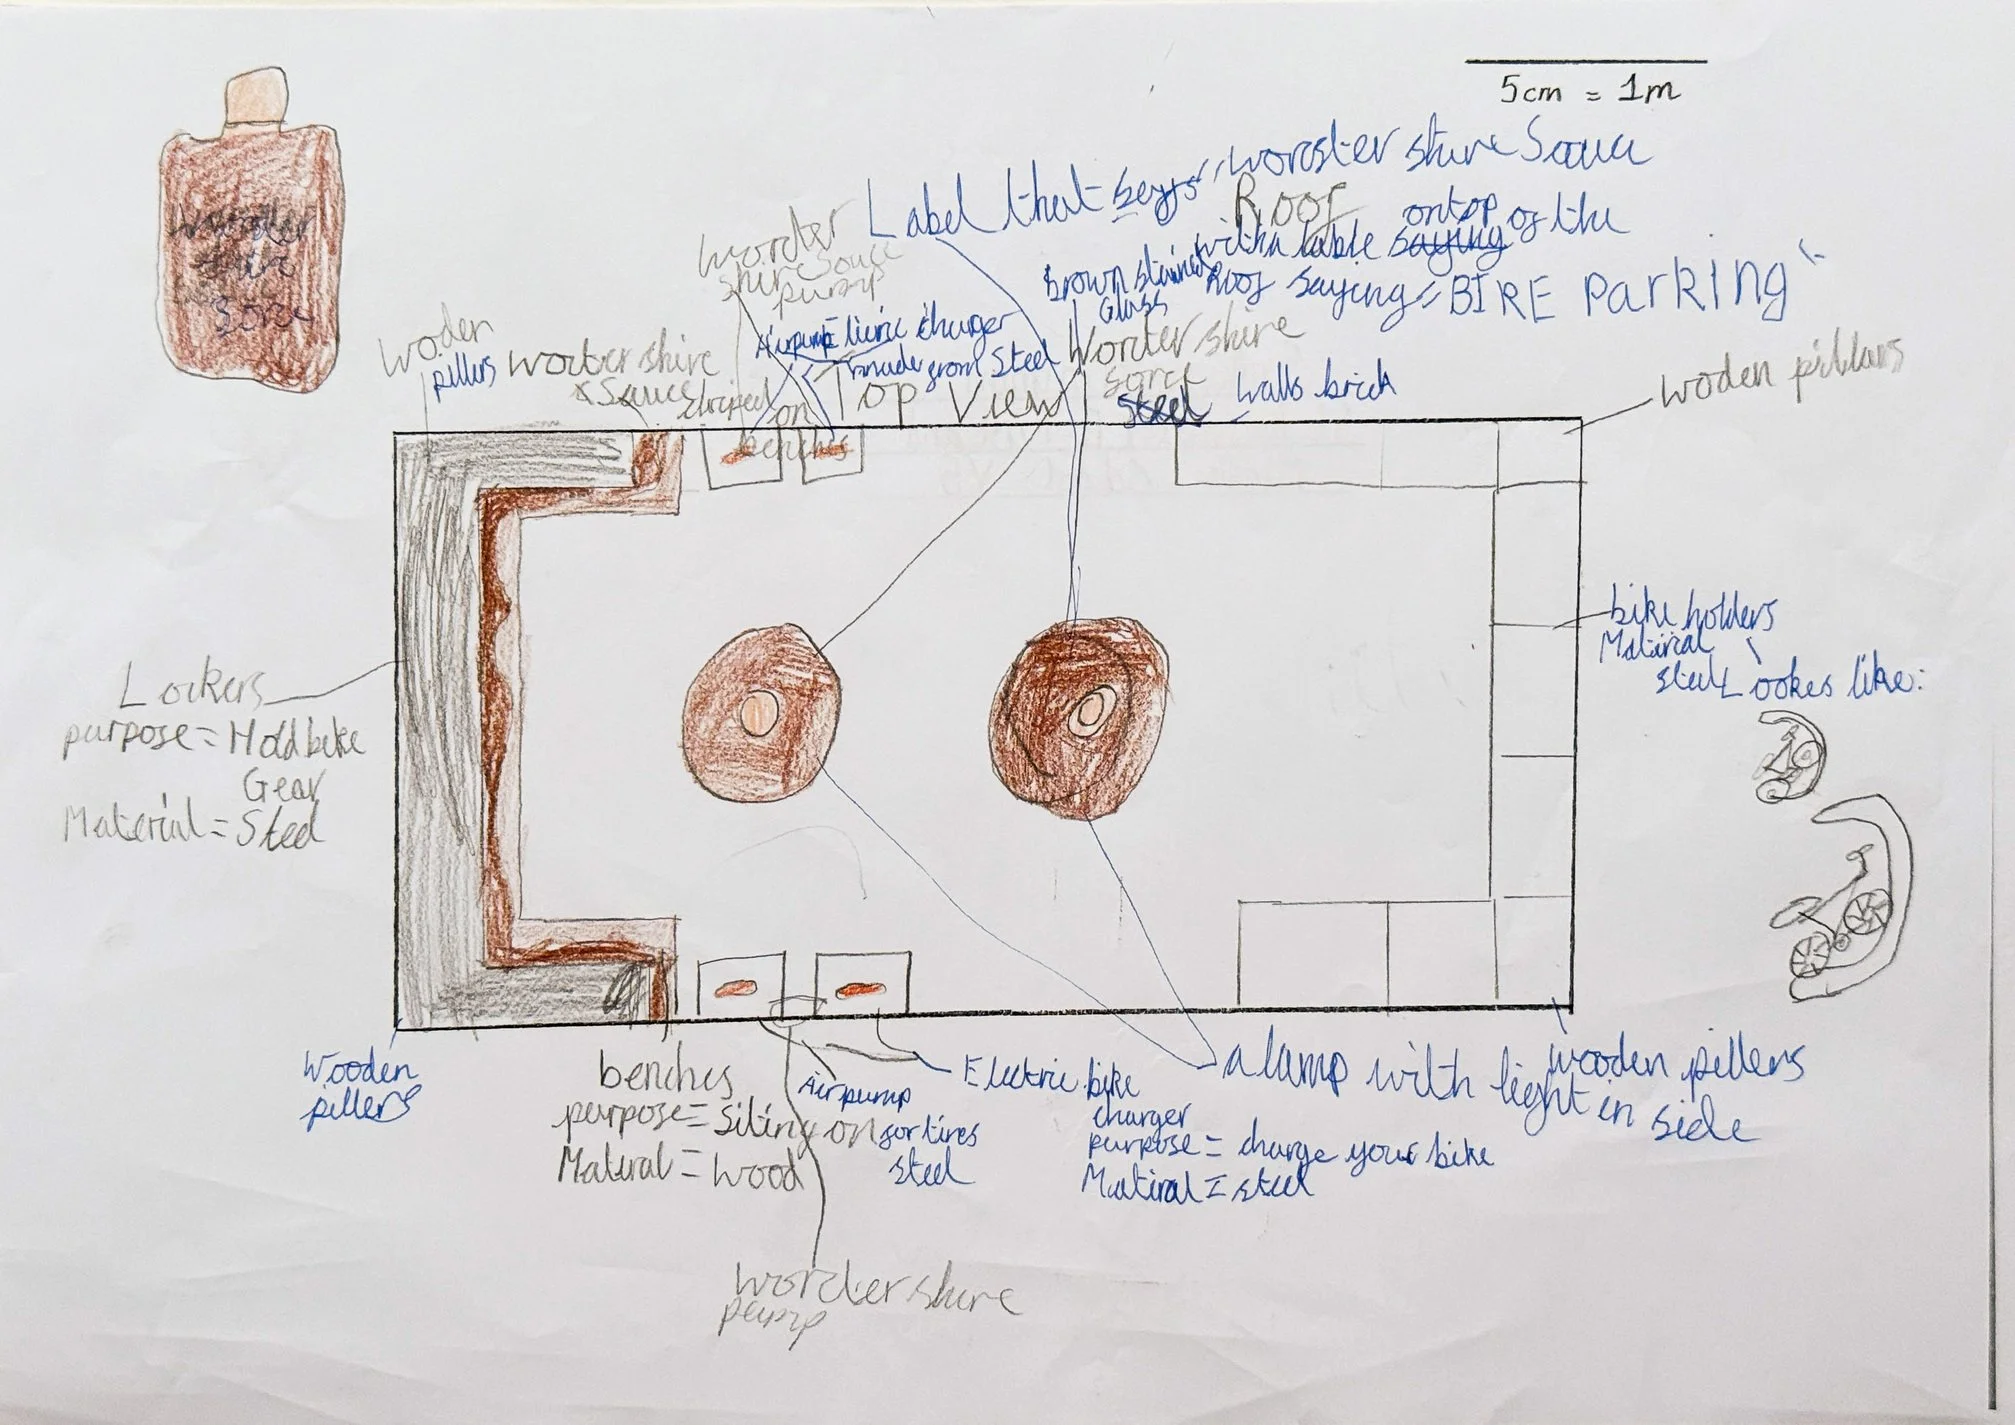 5cm = 1m
Label that says "worcster shire Sauce
Roof
with a lable saying ontop of the
Roof saying = "BIKE Parking"
brown stained
Glass
worster
shire Souce
pump
Airpump
Electric charger
made from Steel
Woden
pillers
worter shire
Sauce striped on
benches
Top View
Worter shire
sorce
Steel
walls brick
woden pillars
bike holders
Matirial
steel Lookes like:
Lockers
purpose = Hold bike
Gear
Material = Steel
Wooden
pillers
benches
purpose = Siting on
Matiral = wood
Air pump
for tires
steel
Electric bike
charger
purpose = charge your bike
Matiral = steel
a lamp with light in side
wooden pillers
worcter shire
pump